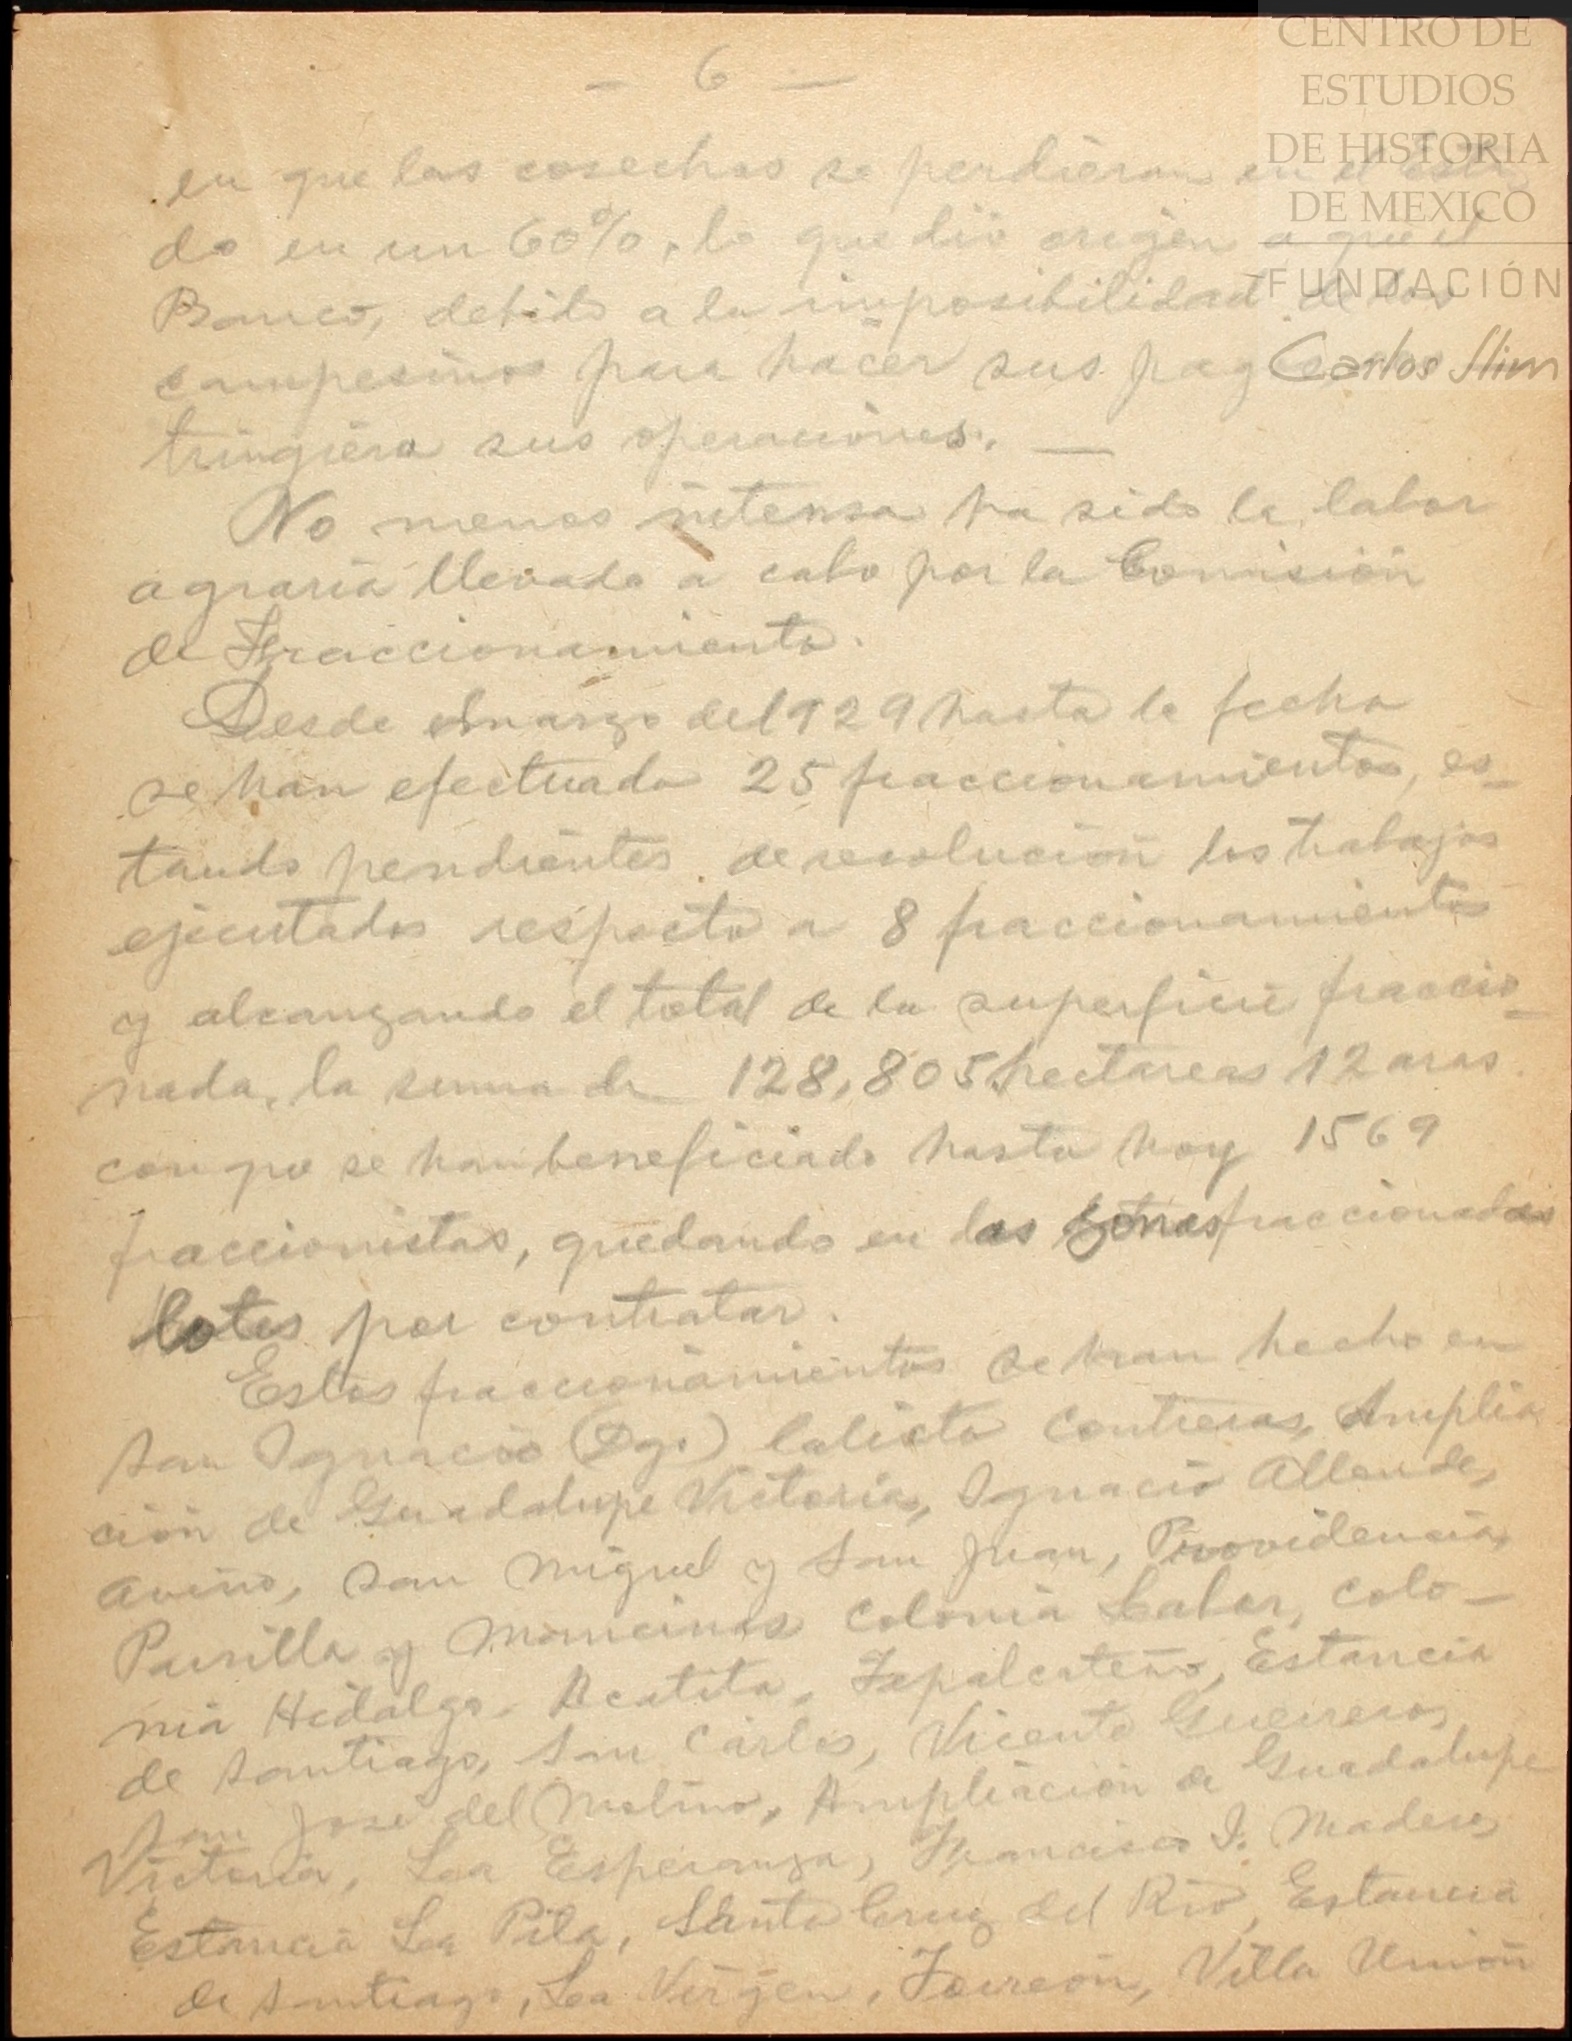 - 6 -
CENTRO DE
ESTUDIOS
DE HISTORIA
DE MEXICO
FUNDACIÓN
Carlos Slim
en que las cosechas se perdieron en el Esta
do en un 60%, lo que dió origen a que el
Banco, debido a la imposibilidad de los
campesinos para hacer sus pag
tringiera sus operaciones. —
No menos intensa ha sido la labor
agraria llevada a cabo por la Comisión
de Fraccionamiento.
Desde marzo del 1929 hasta la fecha
se han efectuado 25 fraccionamientos, es-
tando pendientes de resolución los trabajos
ejecutados respecto a 8 fraccionamientos
y alcanzando el total de la superficie fraccio-
nada, la suma de 128,805 hectareas 12 aras
con que se han beneficiado hasta hoy 1569
fraccionistas, quedando en las zonas fraccionadas
lotes por contratar.
Estos fraccionamientos se han hecho en
San Ignacio (Dgo.) Calixto Contreras, Amplia
ción de Guadalupe Victoria, Ignacio Allende,
Avino, San Miguel y San Juan, Providencia,
Parrilla y Colonia Labor, Colo-
nia Hidalgo, Acatita, Estancia
de Santiago, San Carlos, Vicente Guerrero,
San José del Molino, Ampliación de Guadalupe
Victoria, La Esperanza, Francisco I. Madero,
Estancia La Pila, Santa Cruz del Rio, Estancia
de Santiago, La Virgen, Torreón, Villa Unión